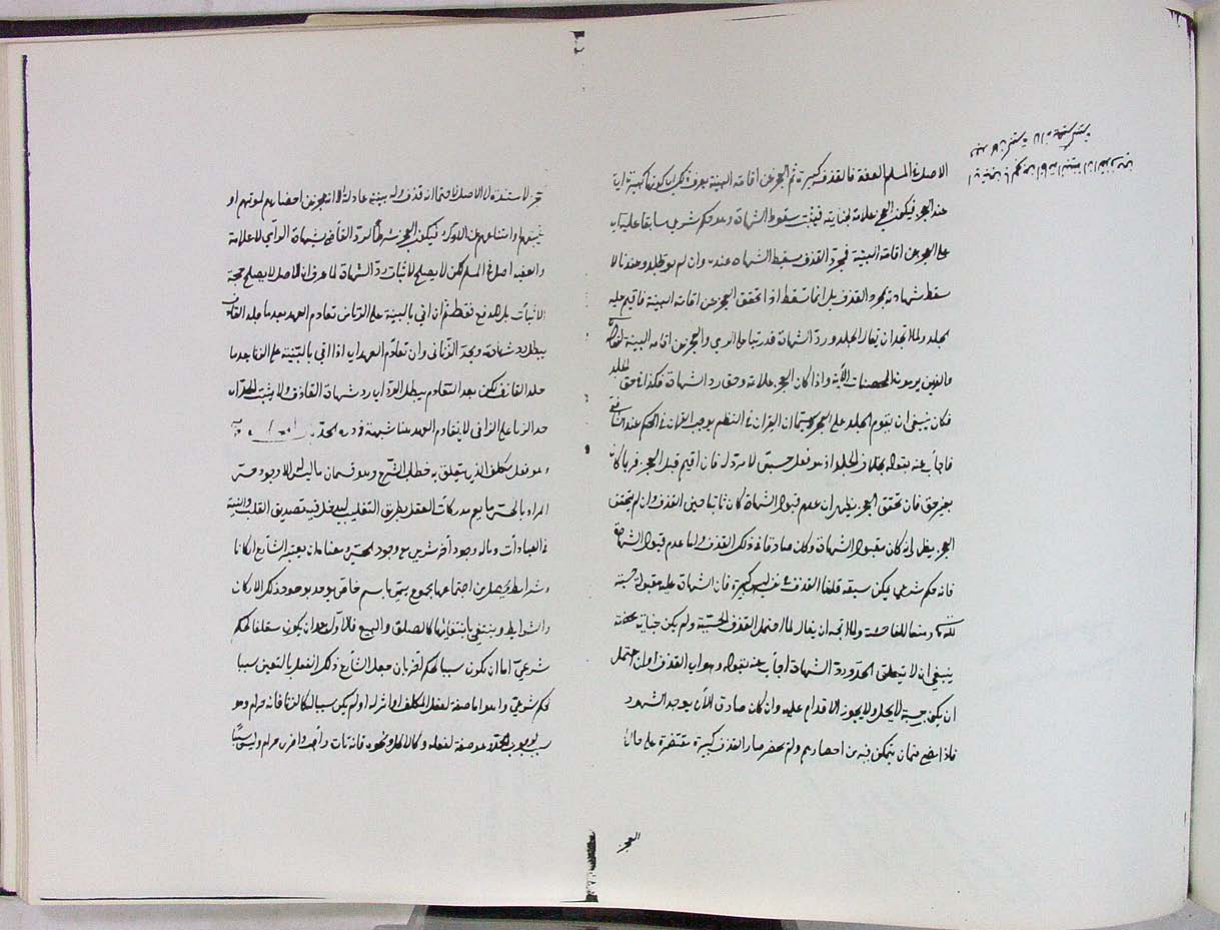 الاصل في المسلم العفة فالقذف كبيرة ثم العجز عن اقامة البينة يعرف
عند العجز فيكون العجز علامة لجنايته فيثبت سقوط الشهادة وهو حكم شرعي سابقا عليه اي
على العجز عن اقامة البينة فبمجرد القذف سقط الشهادة عنده وان لم يجلد وعندنا لا
سقط شهادته بمجرد القذف بل انما تسقط اذا تحقق العجز عن اقامة البينة فاقيم عليه
الجلد ولما اتجه ان يقال الجلد ورد الشهادة قد رتبا على الرمي والعجز عن اقامة البينة لقوله تعالى
والذين يرمون المحصنات الآية واذا كان العجز علامة في حق رد الشهادة فكذا في حق الجلد
فكان ينبغي ان يقدم الجلد على العجز سيما ان القران في النظم يوجب القران في الحكم عند الشافعي
فاجاب عنه بقوله بخلاف الجلد اذ هو فعل حسي لا مرد له فان اقيم قبل العجز فربما كان
بغير حق فان تحقق العجز يظهر ان عدم قبول الشهادة كان ثابتا حين القذف وان لم يتحقق
العجز يظهر انه كان مقبول الشهادة وكان صادقا في ذلك القذف واما عدم قبول الشهادة
فانه حكم شرعي يمكن سبقه قلنا القذف في نفسه ليس بكبيرة فان الشهادة عليه مقبولة حسبة
لله تعالى ومنعا للفاحشة ولما اتجه ان يقال لما احتمل القذف الحسبة ولم يكن جناية محضة
ينبغي ان لا يتعلق الحد ورد الشهادة اجاب عنه بقوله وهو اي القذف وان احتمل
ان يكون حسبة لا يحل ولا يجوز الاقدام عليه وان كان صادقا الا ان يوجد الشهود
فاذا مضى زمان يتمكن فيه من احضارهم ولم يحضر صار القذف كبيرة مقتصرة على حال
العجز
لاستنده الى الاصل لاحتمال انه قذف وله بينة عادلة الا انه عجز عن احضارهم لموتهم او
غيبتهم او امتناعهم عن الاداء فيكون العجز شرطا لرد القاضي شهادة الرامي لا علامة
والعفة اصل في المسلم لكن لا يصلح لاثبات رد الشهادة لما عرف ان الاصل لا يصلح حجة
للاثبات بل للدفع فقط ثم ان اتى بالبينة على الزنا من تقادم العهد بعد ما جلد القاذف
يبطل رد شهادته ويحد الزاني وان تقادم العهد اي اذا اتى بالبينة على الزنا بعد ما
جلد القاذف لكن بعد التقادم يبطل الرد اي رد شهادة القاذف ولا يثبت الحد اي
حد الزنا على الزاني لان تقادم العهد هنا شبهة في درء الحد
وهو فعل مكلف الذي يتعلق به خطاب الشرع وهو قسمان ما ليس له الا وجود حسي
المراد بالحس ما يعم مدركات العقل بطريق التغليب ليدخل فيه تصديق القلب والنية
في العبادات وما له وجود آخر شرعي مع وجود الحسي ومعناه ان يعتبر الشارع اركانا
وشرائط يحصل من اجتماعها مجموع يسمى باسم خاص يوجد بوجود ذلك الاركان
والشرائط وينتفي بانتفائها كالصلوة والبيع فالاول بعد ان يكون متعلقا لحكم
شرعي اما ان يكون سببا لحكم آخر بان جعل الشارع ذلك الفعل بالتعيين سببا
لحكم شرعي واحد اما صفة لفعل المكلف او اثر له او لم يكن سببا له كالزنا فانه حرام وهو
سبب لوجوب الحد وهو صفة لفعله وكالاكل ونحوه فانه تارة واجب واخرى حرام وليس سببا